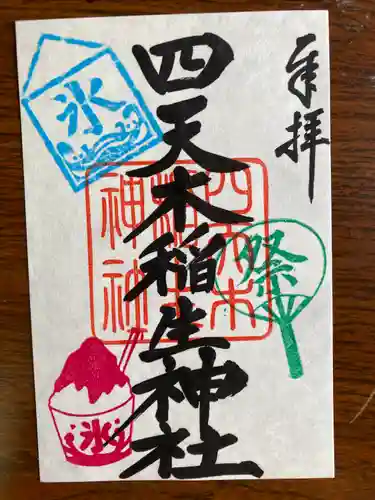 奉拝
四天木稲生神社
氷
祭
氷
四天木
稲生
神社